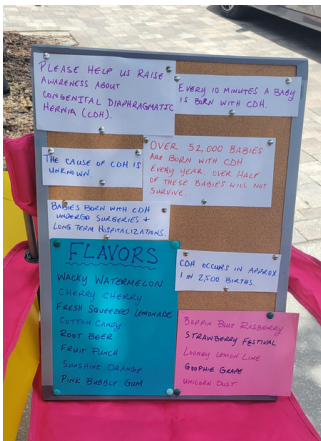 PLEASE HELP US RAISE
AWARENESS ABOUT
CONGENITAL DIAPHRAGMATIC
HERNIA (CDH).
EVERY 10 MINUTES A BABY
IS BORN WITH CDH.
THE CAUSE OF CDH IS
UNKNOWN.
OVER 52,000 BABIES
ARE BORN WITH CDH
EVERY YEAR. OVER HALF
OF THESE BABIES WILL NOT
SURVIVE.
BABIES BORN WITH CDH
UNDERGO SURGERIES +
LONG TERM HOSPITALIZATIONS.
CDH OCCURS IN APPROX
1 IN 2,500 BIRTHS.
FLAVORS
WACKY WATERMELON
CHERRY CHERRY
FRESH SQUEEZED LEMONADE
COTTON CANDY
ROOT BEER
FRUIT PUNCH
SUNSHINE ORANGE
PINK BUBBLE GUM
BOPPIN BLUE RASBERRY
STRAWBERRY FESTIVAL
LOONEY LEMON LIME
GOOPHIE GRAPE
UNICORN DUST